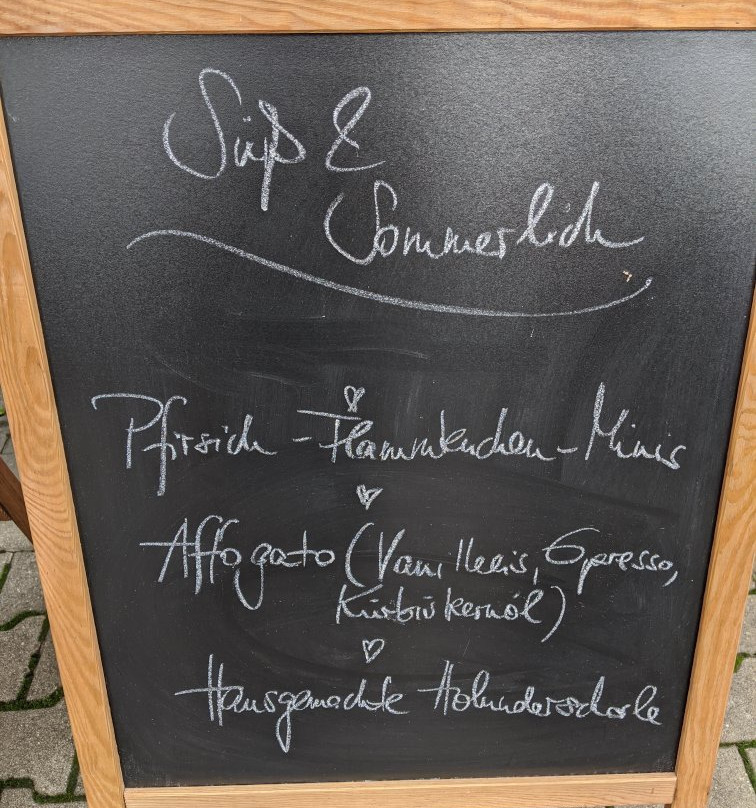 Süß &
Sommerlich
Pfirsich - Flammkuchen - Minis
Affogato (Vanilleeis, Espresso,
Kürbiskernöl)
Hausgemachte Holunderschorle